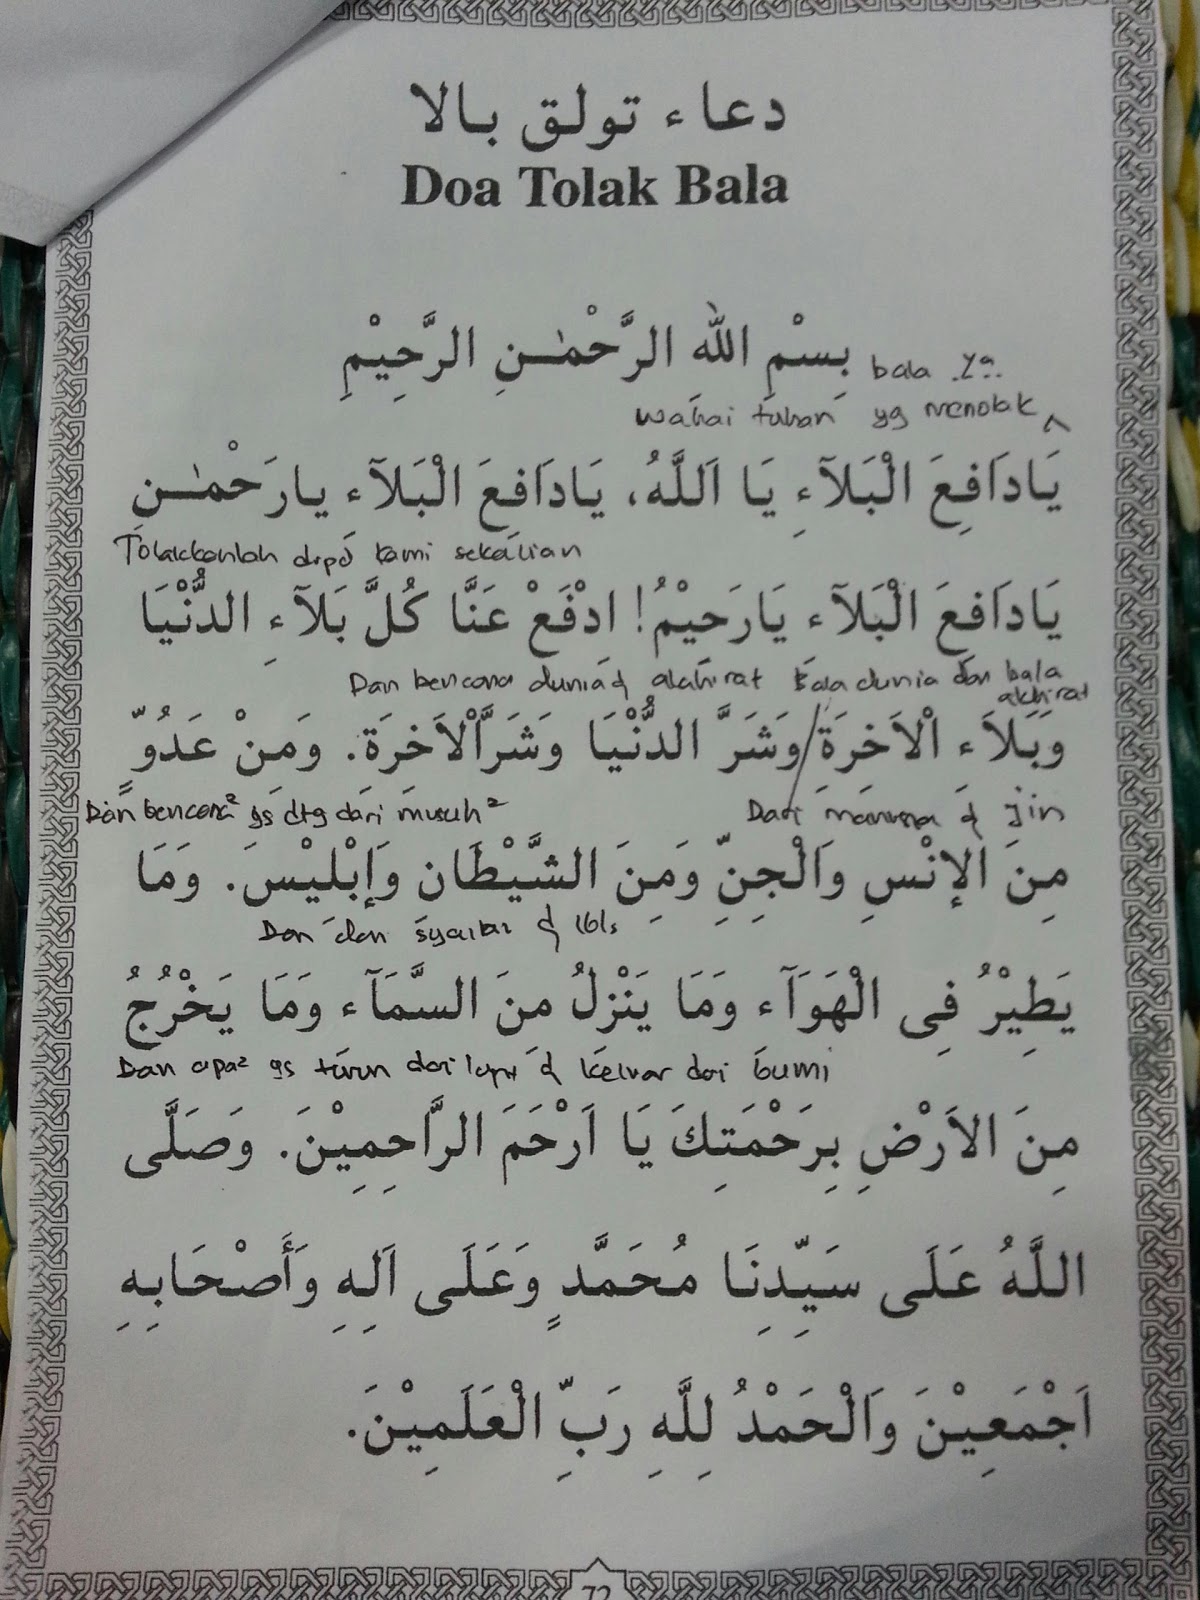 دعاء تولق بالا
Doa Tolak Bala
بِسْمِ اللهِ الرَّحْمٰنِ الرَّحِيْمِ
bala ya
wahai tuhan yg menolak
يَادَافِعَ الْبَلَآءِ يَا اَللَّهُ، يَادَافِعَ الْبَلَآء يارَحْمٰنِ
Tolakkanlah drpd kami sekalian
يَادَافِعَ الْبَلَآء يَارَحِيْمُ! ادْفَعْ عَنَّا كُلَّ بَلَآءِ الدُّنْيَا
Dan bencana dunia & akhirat bala dunia dan bala
akhirat
وَبَلَاَء اْلَاخِرَةِ/وَشَرَّ الدُّنْيَا وَشَرَّاْلَاخِرَةِ. وَمِنْ عَدُوٍّ
Dan bencana² yg dtg dari musuh² Dari manusia & jin
مِنَ الإِنْسِ وَالْجِنِّ وَمِنَ الشَّيْطَانِ وَإِبْلِيْسَ. وَمَا
Dan dan syaitan & iblis
يَطِيْرُ فِى الْهَوَآء وَمَا يَنْزِلُ مِنَ السَّمَآء وَمَا يَخْرُجُ
Dan apa² yg turun dari langit & keluar dari bumi
مِنَ الاَرْضِ بِرَحْمَتِكَ يَا اَرْحَمَ الرَّاحِمِيْنَ. وَصَلَّى
اللَّهُ عَلَى سَيِّدِنَا مُحَمَّدٍ وَعَلَى اَلِهِ وَأَصْحَابِهِ
اَجْمَعِيْنَ وَالْحَمْدُ لِلَّهِ رَبِّ الْعَلَمِيْنَ.
72